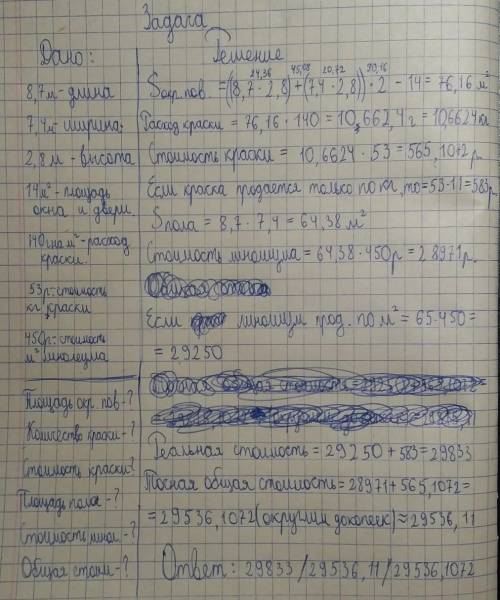 Задача
Дано:
8,7м - длина
7,4м - ширина.
2,8 м - высота
14м² - площадь
окна и двери.
140г на м² - расход
краски.
53р - стоимость
кг краски
450р - стоимость
м² линолеума
Площадь окр. пов - ?
Количество краски - ?
Стоимость краски?
Площадь пола - ?
Стоимость, линол - ?
Общая стоим - ?
Решение
24,36 45,08 20,72 90,16
Sокр.пов. = ((8,7 · 2,8) + (7,4 · 2,8)) · 2 - 14 = 76,16 м²
Расход краски = 76,16 · 140 = 10,662,4 г = 10,6624 кг
Стоимость краски = 10,6624 · 53 = 565,1072 р.
Если краска продается только по кг, то = 53 · 11 = 583р.
Sпола = 8,7 · 7,4 = 64,38 м²
Стоимость линолиума = 64,38 · 450р = 28971р.
Если линолиум прод. по м² = 65 · 450 =
= 29250
Реальная стоимость = 29250 + 583 = 29833
Тосная общая стоимость = 28971 + 565,1072 =
= 29536,1072 (округлим до копеек) ≈ 29536,11
Ответ: 29833 / 29536,11 / 29536,1072